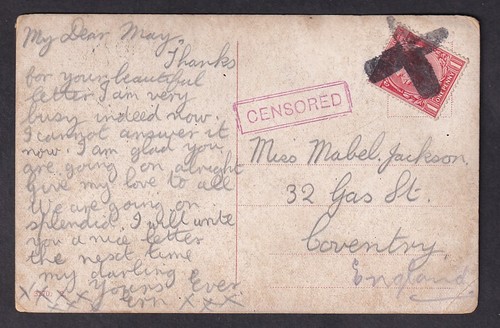 My Dear May,
Thanks
for your beautiful
letter I am very
busy indeed now.
I cannot answer it
now. I am glad you
are going on alright
give my love to all
We are going on
splendid, I will write
you a nice letter
the next time
my darling
Yours Ever
Ern xxx
xx xxx
CENSORED
ONE PENNY
Miss Mabel. Jackson,
32 Gas St.
Coventry.
England.